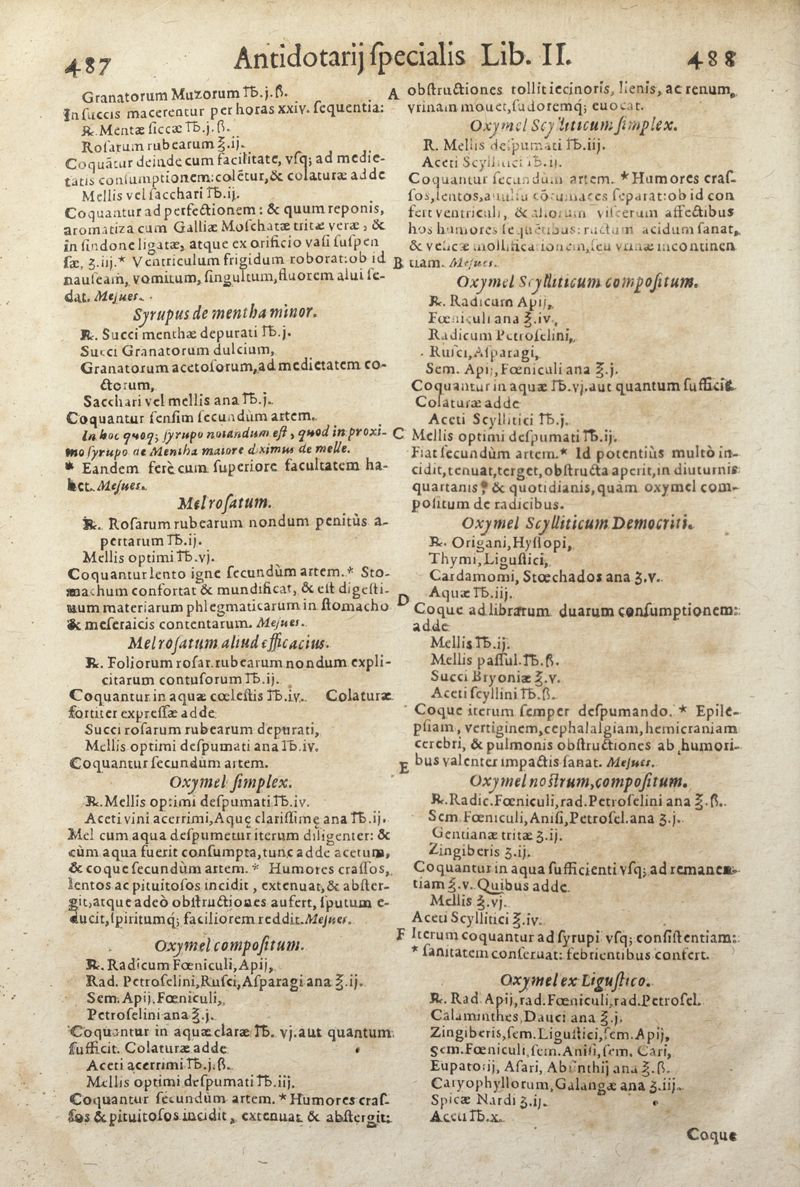 487
Antidotarij ſpecialis Lib. II.
488
Granatorum Muzorum ℔.j.ß.
In ſuccis macerentur per horas xxiv. ſequentia:
℞. Mentæ ſiccæ ℔.j.ß.
Roſarum rubearum ℥.ij.
Coquātur deinde cum facilitate, vſq; ad medie-
tatis conſumptionem: colētur, & colaturæ adde
Mellis vel ſacchari ℔.ij.
Coquantur ad perfectionem: & quum reponis,
aromatiza cum Galliæ Moſchatæ tritæ veræ, &
in ſindone ligatæ, atque ex orificio vaſi ſuſpen
ſæ, ʒ.iij.* Ventriculum frigidum roborat: ob id
nauſeam, vomitum, ſingultum, fluorem alui ſe-
dat. Meſues.
Syrupus de mentha minor.
℞. Succi menthæ depurati ℔.j.
Succi Granatorum dulcium,
Granatorum acetoſorum, ad medietatem co-
ctorum,
Sacchari vel mellis ana ℔.j.
Coquantur ſenſim ſecundùm artem.
In hoc quoq; ſyrupo notandum eſt, quod in proxi-
mo ſyrupo de Mentha maiore diximus de melle.
* Eandem ferè cum ſuperiore facultatem ha-
bet. Meſues.
Mel roſatum.
℞. Roſarum rubearum nondum penitùs a-
pertarum ℔.ij.
Mellis optimi ℔.vj.
Coquantur lento igne ſecundùm artem.* Sto-
machum confortat & mundificat, & eſt digeſti-
uum materiarum phlegmaticarum in ſtomacho
& meſeraicis contentarum. Meſues.
Mel roſatum aliud efficacius.
℞. Foliorum roſar. rubearum nondum expli-
citarum contuſorum ℔.ij.
Coquantur in aquæ cœleſtis ℔.iv. Colaturæ
fortiter expreſſæ adde
Succi roſarum rubearum depurati,
Mellis optimi deſpumati ana ℔.iv.
Coquantur ſecundùm artem.
Oxymel ſimplex.
℞. Mellis optimi deſpumati ℔.iv.
Aceti vini acerrimi, Aquę clariſſimę ana ℔.ij.
Mel cum aqua deſpumetur iterum diligenter: &
cùm aqua fuerit conſumpta, tunc adde acetum,
& coque ſecundùm artem. * Humores craſſos,
lentos ac pituitoſos incidit, extenuat, & abſter-
git, atque adeò obſtructiones aufert, ſputum e-
ducit, ſpiritumq; faciliorem reddit. Meſues.
Oxymel compoſitum.
℞. Radicum Fœniculi, Apij,
Rad. Petroſelini, Ruſci, Aſparagi ana ℥.ij.
Sem. Apij, Fœniculi,
Petroſelini ana ℥.j.
Coquantur in aquæ claræ ℔. vj. aut quantum
ſufficit. Colaturæ adde
Aceti acerrimi ℔.j.ß.
Mellis optimi deſpumati ℔.iij.
Coquantur ſecundùm artem. * Humores craſ-
ſos & pituitoſos incidit, extenuat & abſtergit:
A obſtructiones tollit iecinoris, lienis, ac renum,
vrinam mouet, ſudoremq; euocat.
Oxymel Scylliticum ſimplex.
R. Mellis deſpumati ℔.iij.
Aceti Scyllitici ℔.ij.
Coquantur ſecundùm artem. * Humores craſ-
ſos, lentos, ſeparat: ob id con
fert ventriculi, & aliorum viſcerum affectibus
hos humores ſequētibus: ructum acidum ſanat,
& veſicæ ſeu vrinæ incontinen
B tiam. Meſues.
Oxymel Scylliticum compoſitum.
℞. Radicum Apij,
Fœniculi ana ℥.iv.
Radicum Petroſelini,
Ruſci, Aſparagi,
Sem. Apij, Fœniculi ana ℥.j.
Coquantur in aquæ ℔.vj. aut quantum ſufficit.
Colaturæ adde
Aceti Scyllitici ℔.j.
C Mellis optimi deſpumati ℔.ij.
Fiat ſecundùm artem.* Id potentiùs multò in-
cidit, tenuat, terget, obſtructa aperit, in diuturnis
quartanis & quotidianis, quàm oxymel com-
poſitum de radicibus.
Oxymel Scylliticum Democriti.
℞. Origani, Hyſſopi,
Thymi, Liguſtici,
Cardamomi, Stœchados ana ʒ.v.
Aquæ ℔.iij.
D Coque ad librarum duarum conſumptionem:
adde
Mellis ℔.ij.
Mellis paſſul. ℔.ß.
Succi Bryoniæ ℥.v.
Aceti ſcyllini ℔.ß.
Coque iterum ſemper deſpumando. * Epile-
pſiam, vertiginem, cephalalgiam, hemicraniam
cerebri, & pulmonis obſtructiones ab humori-
E bus valenter impactis ſanat. Meſues.
Oxymel noſtrum, compoſitum.
℞. Radic. Fœniculi, rad. Petroſelini ana ℥.ß.
Sem. Fœniculi, Aniſi, Petroſel. ana ʒ.j.
Gentianæ tritæ ʒ.ij.
Zingiberis ʒ.ij.
Coquantur in aqua ſufficienti vſq; ad remanen-
tiam ℥.v. Quibus adde
Mellis ℥.vj.
Aceti Scyllitici ℥.iv.
F Iterum coquantur ad ſyrupi vſq; conſiſtentiam:
* ſanitatem conſeruat: febrientibus confert.
Oxymel ex Liguſtico.
℞. Rad. Apij, rad. Fœniculi, rad. Petroſel.
Calaminthes, Dauci ana ℥.j.
Zingiberis, ſem. Liguſtici, ſem. Apij,
Sem. Fœniculi, ſem. Aniſi, ſem. Cari,
Eupatorij, Aſari, Abſinthij ana ℥.ß.
Caryophyllorum, Galangæ ana ʒ.iij.
Spicæ Nardi ʒ.ij.
Aceti ℔.x.
Coque